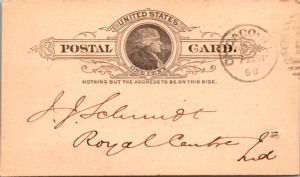 UNITED STATES
POSTAL CARD.
ONE CENT
NOTHING BUT THE ADDRESS TO BE ON THIS SIDE.
90
J. J. Schmidt
Royal Centre
Ind